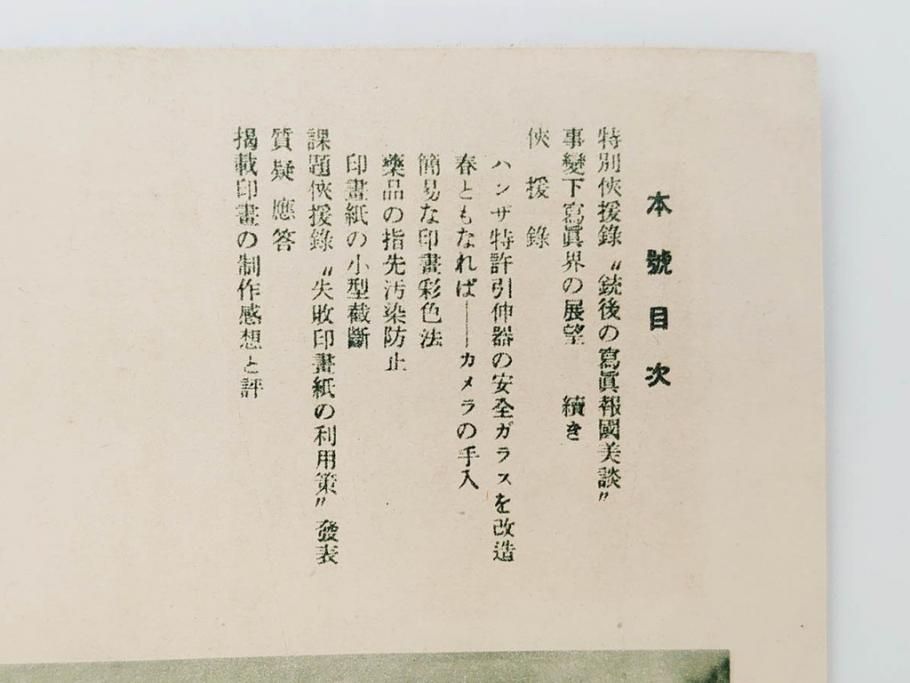 本號目次
特別俠援錄 〝銃後の寫眞報國美談〟
事變下寫眞界の展望　續き
俠援錄
ハンザ特許引伸器の安全ガラスを改造
春ともなれば——カメラの手入
簡易な印畫彩色法
藥品の指先汚染防止
印畫紙の小型截斷
課題俠援錄 〝失敗印畫紙の利用策〟 發表
質疑應答
揭載印畫の制作感想と評